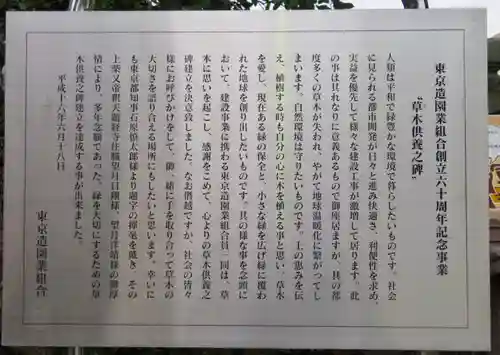 東京造園業組合創立六十周年記念事業
"草木供養之碑"
人類は平和で緑豊かな環境で暮らしたいものです。社会
に見られる都市開発が日々と進み快適さ、利便性を求め、
実益を優先して様々な建設工事が激増して居ります。此
の事は其れなりに意義あるもので御座居ますが、其の都
度多くの草木が失われ、やがて地球温暖化に繋がってし
まいます。自然環境は守りたいものです。土の恵みを伝
え、植樹する時も自分の心に木を植える事と思い、草木
を愛し、現在ある緑の保全と、小さな緑を広げ緑に覆わ
れた地球を創り出したいものです。其の様な事を念頭に
おいて、建設事業に携わる東京造園業組合員一同は、草
木に思いを起こし、感謝をこめて、心よりの草木供養之
碑建立を決意致しました。なお僭越ですが、社会の皆々
様にお呼びかけをして、御一緒に手を取り合って草木の
大切さを語り合える場所にもしたいと思います。幸いに
も東京都知事石原慎太郎様より題字の揮毫を戴き、その
上柴又帝釈天題経寺住職望月日翔様、望月洋靖様の御厚
情により、多年念願であった、緑を大切にするための草
木供養之碑建立を達成する事が出来ました。
平成十六年六月十八日
東京造園業組合